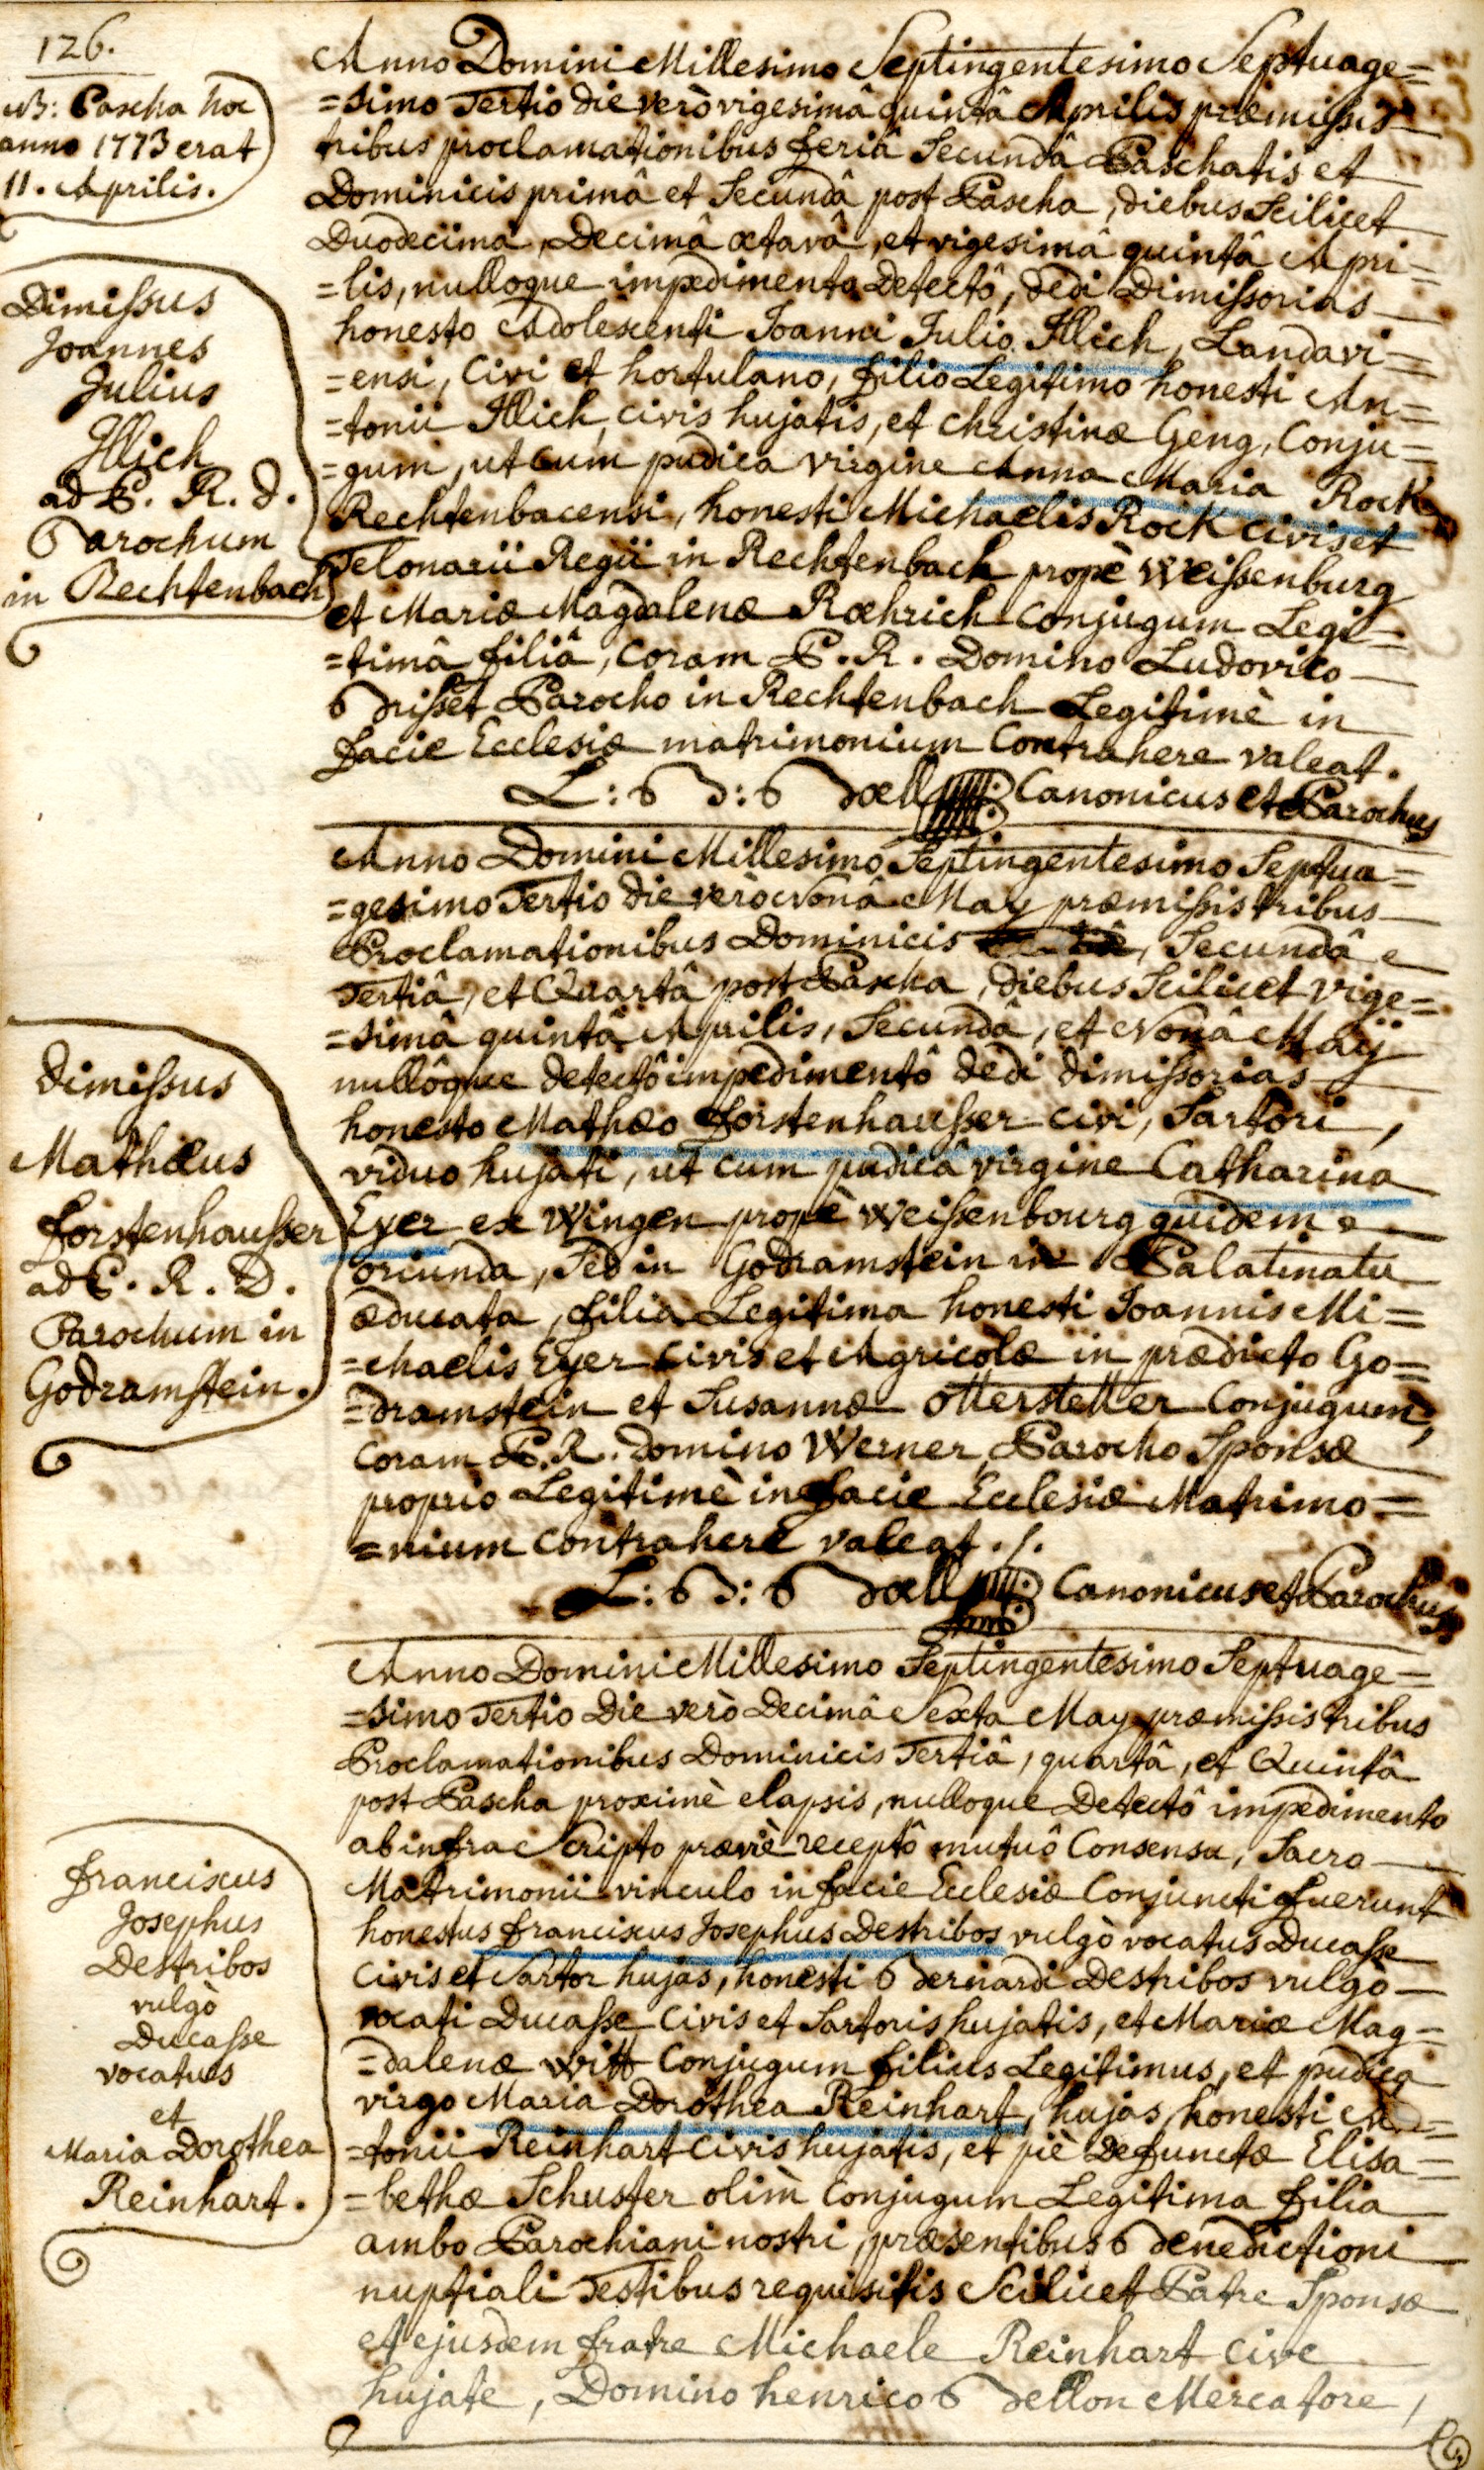 126.
NB: Pascha hoc
anno 1773 erat
11. Aprilis.
Anno Domini Millesimo Septingentesimo Septuage=
=simo Tertio die verò vigesimâ quintâ Aprilis præmissis
tribus proclamationibus feriâ Secundâ Paschatis et
Dominicis primâ et Secundâ post Pascha, diebus Scilicet
Duodecima, Decimâ octavâ, et vigesimâ quintâ Apri=
=lis, nulloque impedimento detectô, dedi Dimissorias
honesto Adolescenti Joanni Julio Illich, Landavi=
=ensi, Civi et hortulano, filio Legitimo honesti An=
=tonii Illich, civis hujatis, et Christinæ Geng, Conju=
=gum, ut cum pudica virgine Anna Maria Rock
Rechtenbacensi, honesti Michaelis Rock civis et
Telonarii Regii in Rechtenbach propè Weissenburg
et Mariæ Magdalenæ Rœhrich Conjugum Legi=
=timâ filiâ, Coram P. R. Domino Ludovico
Brisset Parocho in Rechtenbach Legitimè in
facie Ecclesiæ matrimonium Contrahere valeat.
L: B: Bœll Canonicus et Parochus
Dimissus
Joannes
Julius
Illich
ad P. R. d.
Parochum
in Rechtenbach
Anno Domini Millesimo Septingentesimo Septua=
=gesimo Tertio die verò Nonâ May præmissis tribus
Proclamationibus Dominicis Secundâ
Tertiâ, et Quartâ post Pascha, diebus Scilicet vige=
=simâ quintâ Aprilis, Secundâ, et Nonâ Maÿ
nullôque detectô impedimentô dedi dimissorias
honesto Mathæo Forstenhausser civi, Sartori,
viduo hujati, ut cum pudicâ virgine Catharina
Eyer ex Wingen propè Weissenbourg quidem
oriunda, Sed in Godramstein in Palatinatu
æducata, filia Legitima honesti Joannis Mi=
=chaelis Eyer Civis et Agricolæ in prædicto Go=
=dramstein et Susannæ Otterstetter Conjugum,
Coram P. R. Domino Werner Parocho Sponsæ
proprio Legitimè in facie Ecclesiæ Matrimo=
=nium Contrahere valeat ./.
L: B: Bœll Canonicus et Parochus
Dimissus
Mathæus
Forstenhausser
ad P. R. D.
Parochum in
Godramstein.
Anno Domini Millesimo Septingentesimo Septuage=
=simo Tertio Die verò Decimâ Sexta May præmissis tribus
Proclamationibus Dominicis Tertiâ, quartâ, et Quintâ
post Pascha proximè elapsis, nulloque Detectô impedimento
ab infra Scripto præviè receptô mutuô Consensu, Sacro
Matrimonii vinculo in facie Ecclesiæ Conjuncti fuerunt
honestus Franciscus Josephus Destribos vulgò vocatus Ducasse
Civis et Sartor hujas, honesti Bernardi Destribos vulgò
vocati Ducasse Civis et Sartoris hujatis, et Mariæ Mag=
=dalenæ Witt Conjugum filius Legitimus, et pudica
virgo Maria Dorothea Reinhart, hujas, honesti An=
=tonii Reinhart Civis hujatis, et piè Defunctæ Elisa=
=bethæ Schuster olim Conjugum Legitima filia
ambo Parochiani nostri, præsentibus Benedictioni
nuptiali Testibus requisitis Scilicet Patre Sponsæ
et ejusdem fratre Michaele Reinhart Cive
hujate, Domino henrico Bellon Mercatore,
Franciscus
Josephus
Destribos
vulgò
Ducasse
vocatus
et
Maria Dorothea
Reinhart.